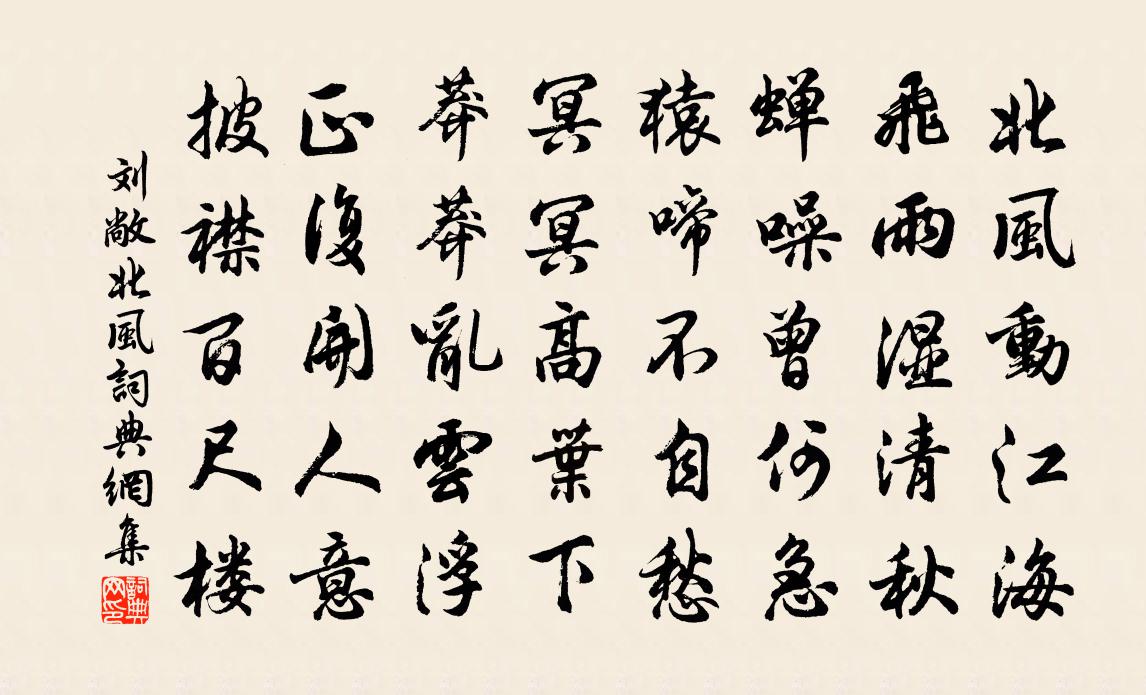 北風動江海
飛雨濕清秋
蝉噪曾何急
猿啼不自愁
冥冥高葉下
莽莽亂雲浮
正復開人意
披襟百尺楼
刘敞北風詞典網集
詞典网印